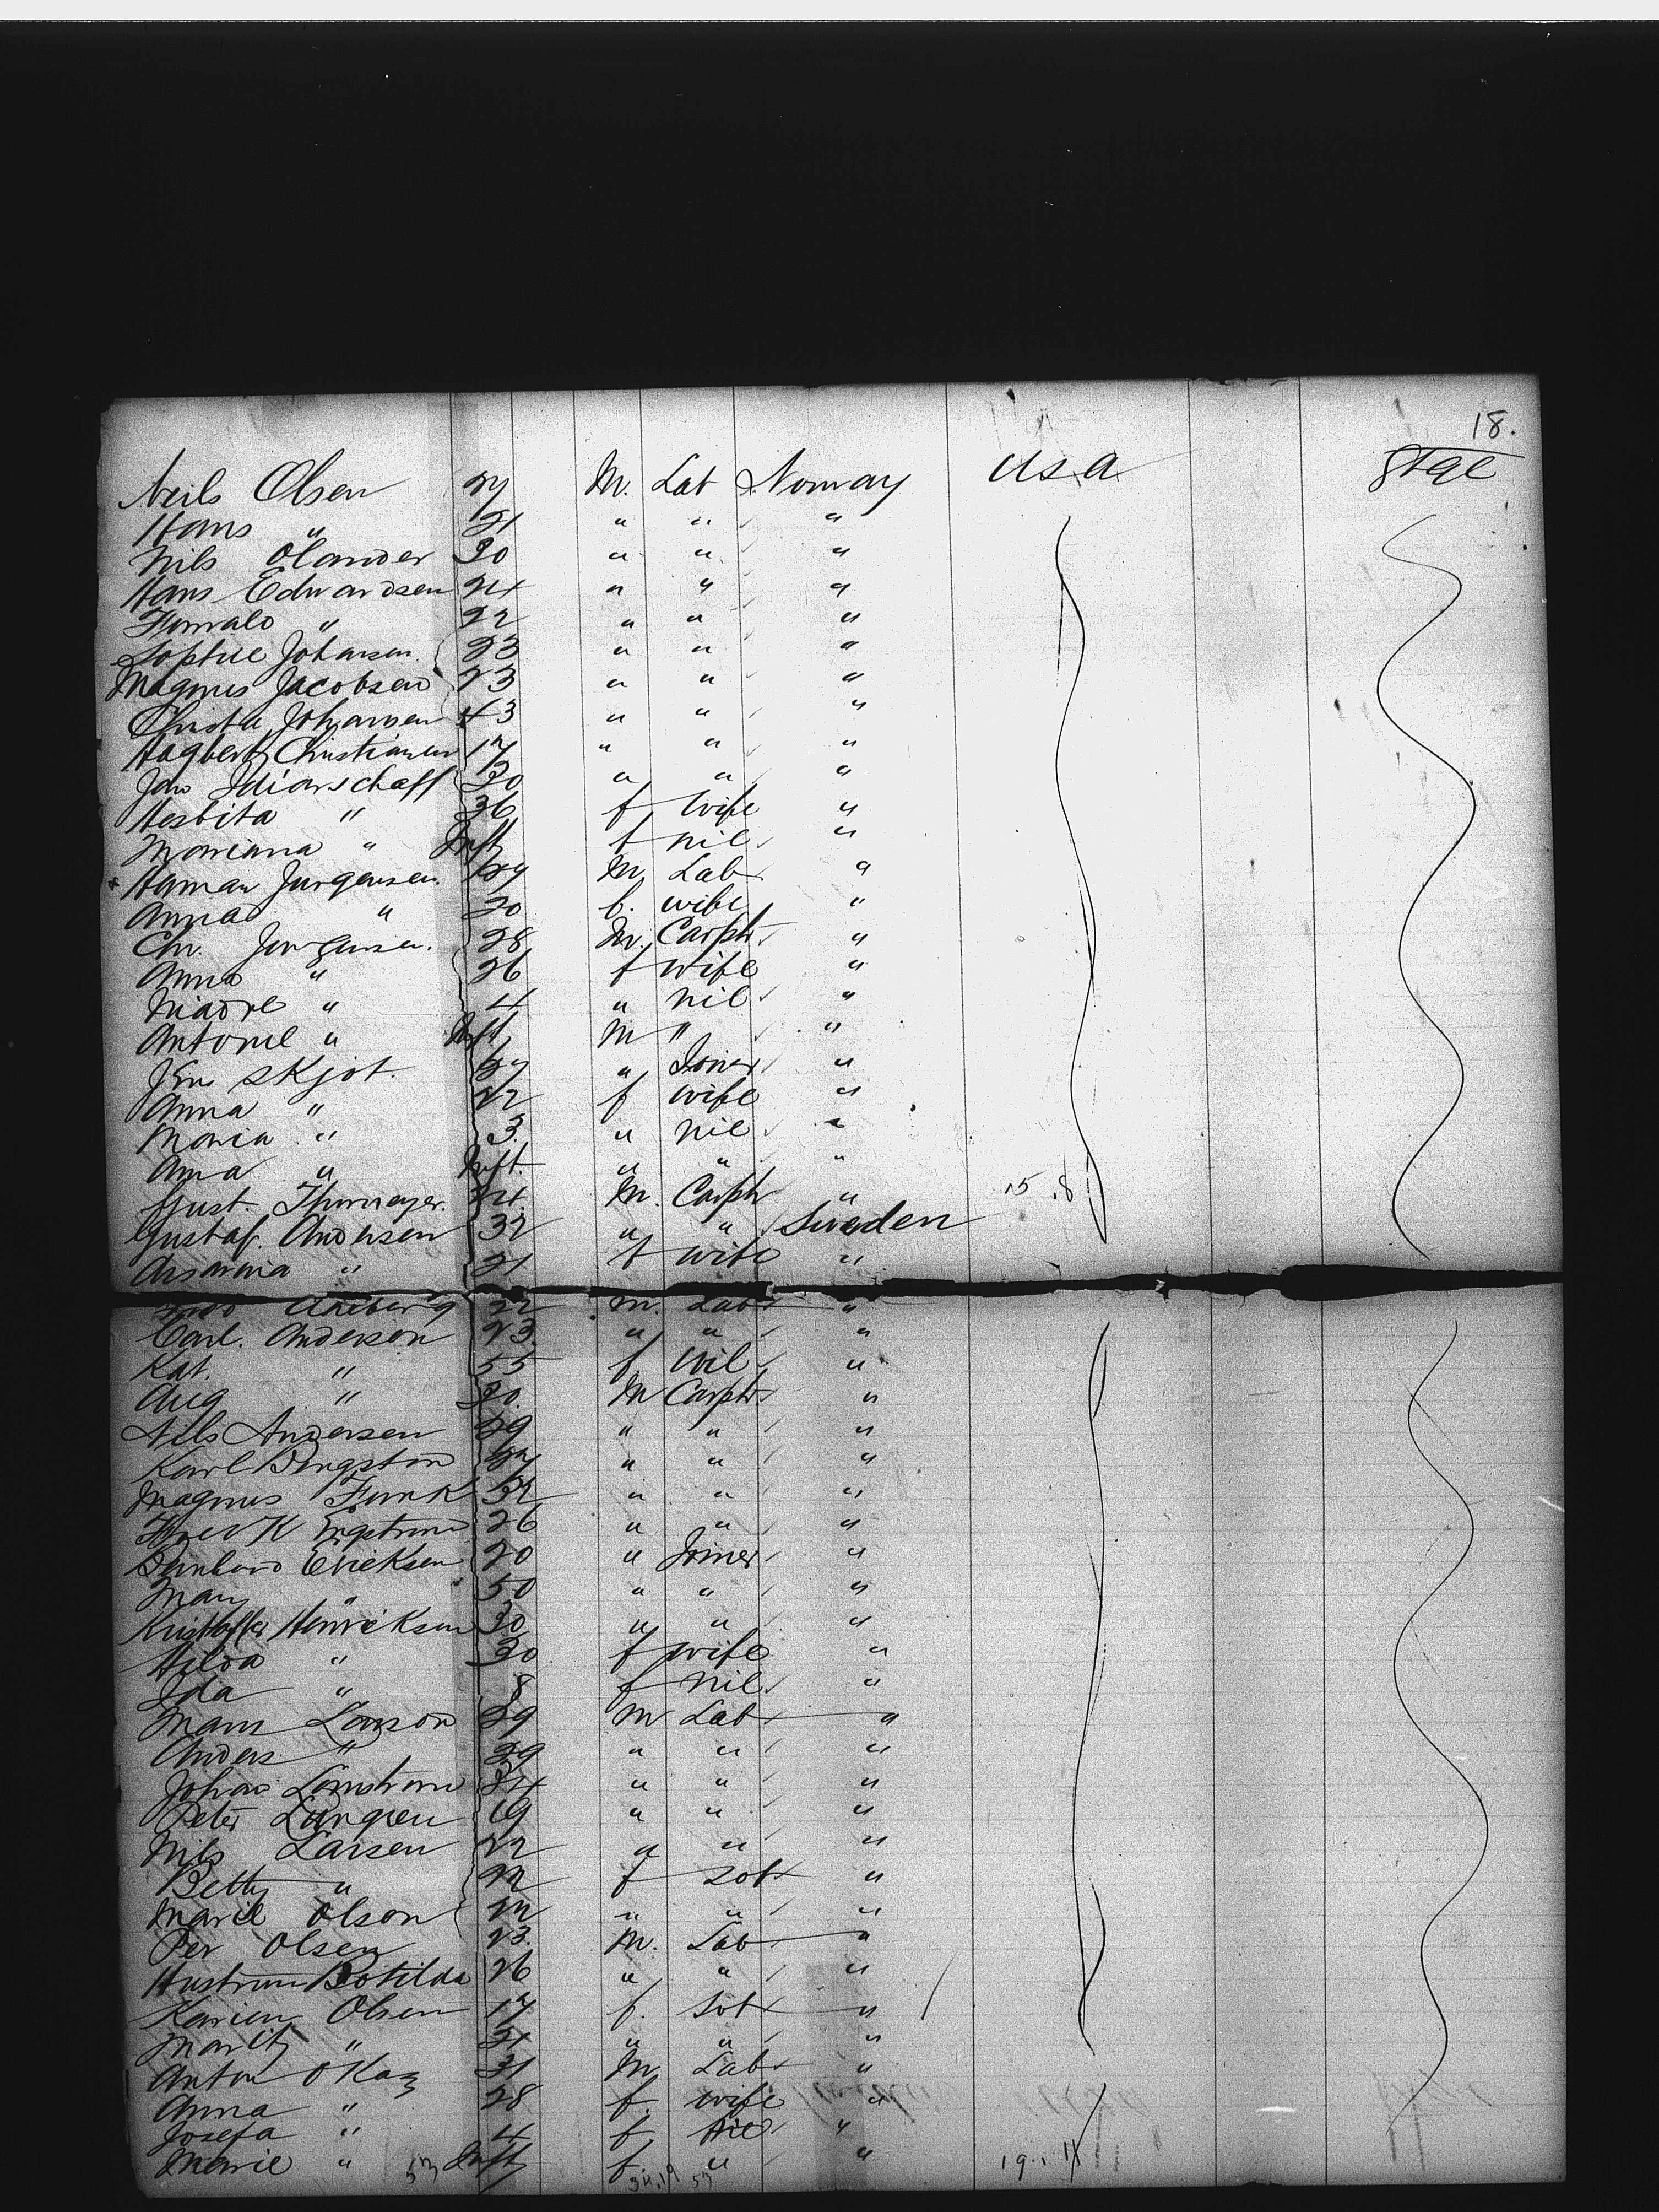 18.
Neils Olsen 27 M. Lab Norway USA Stge
Hans " 21 " " "
Nils Olander 30 " " "
Hans Edwardsen 24 " " "
" 22 " " "
Sophie Johansen 23 " " "
Magnus Jacobsen 23 " " "
Christa Johansen 43 " " "
Hagbert Christiansen 17 " " "
Jan 30 " " "
Hesbita " 36 f Wife "
Mariana " Inft f nil "
Haman Jurgensen 29 M Lab "
Anna " 20 f. wife "
Chr. Jurgensen. 28 M. Carptr "
Anna " 26 f wife "
" 4 " nil "
Antonie " Inft M " "
Jens Skjot. 27 " Joiner "
Anna " 22 f wife "
Maria " 3. " nil "
Ana " Inft. " " "
Gust. 24. M. Carptr " 15.8
Gustaf. Andersen 32 " " Sweden
" 21 f wife "
22 M. Lab "
Carl. Anderson 23. " " "
Kat. " 55 f. Wil "
Aug " 20. M Carptr "
Nils Andersen 29 " " "
Karl Bengston 27 " " "
Magnus Funk 32 " " "
Engstrom 26 " " "
Bernhard Ericksen 20 " Joiner "
Mary " 50 " " "
Henricksen 30 " " "
Hilda " 30 f wife "
Ida " 8 f nil "
Mans Larson 29 M Lab "
Anders " 29 " " "
Johan 24 " " "
Peter Lungren 19 " " "
Nils Larsen 22 " " "
Betty " 22 f "
Marie Olson 22 " " "
Per Olsen 23. M. Lab "
Hustrum Botilda 26 " " "
Karien Olsen 17 f. "
" 21 " " "
Anton 31 M Lab "
Anna " 28 f. wife "
Josefa " 4 f nil "
Marie " 53 Inft f " " 19.11
34.19 53